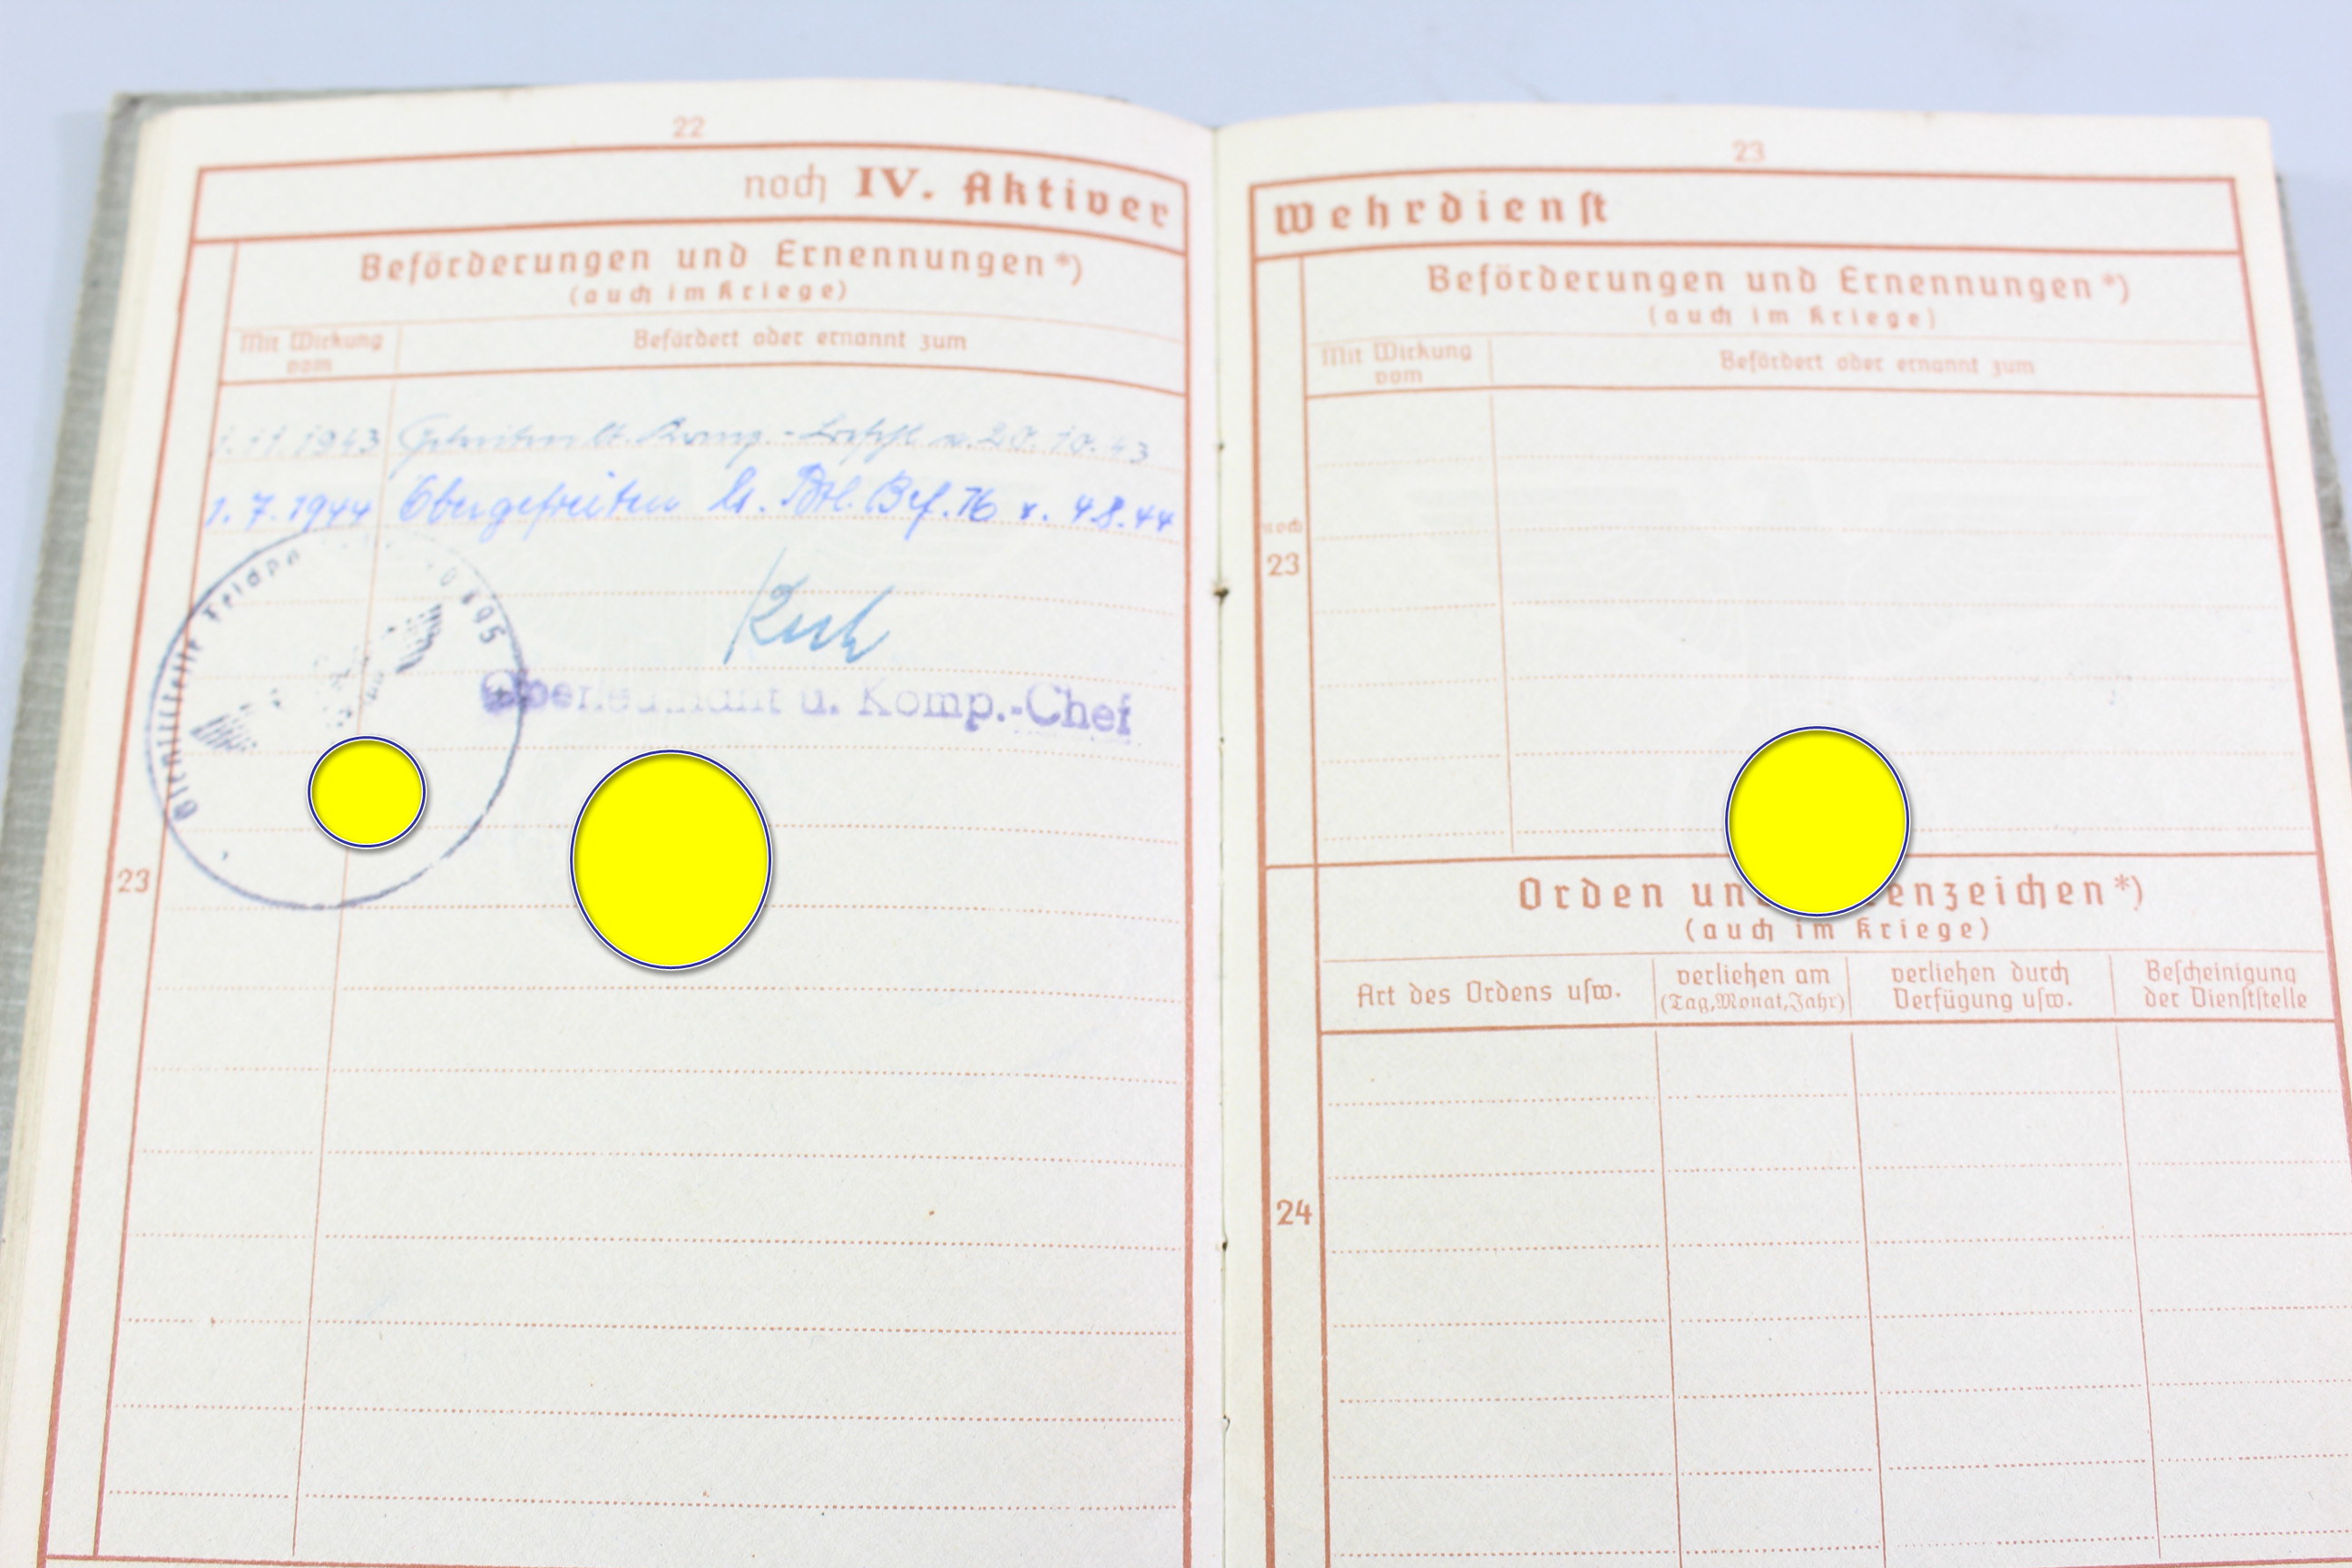 22
noch IV. Aktiver
Beförderungen und Ernennungen*)
(auch im Kriege)
Mit Wirkung
vom
Befördert oder ernannt zum
1.11.1943 Gefreiten lt. Komp.-Befehl v. 20.10.43
1.7.1944 Obergefreiten lt. Btl. Bef. 76 v. 4.8.44
Dienststelle Feldpo 0895
Oberleutnant u. Komp.-Chef
23
23
Wehrdienst
Beförderungen und Ernennungen*)
(auch im Kriege)
Mit Wirkung
vom
Befördert oder ernannt zum
noch
23
Orden un enzeichen*)
(auch im Kriege)
Art des Ordens usw.
verliehen am
(Tag, Monat, Jahr)
verliehen durch
Verfügung usw.
Bescheinigung
der Dienststelle
24